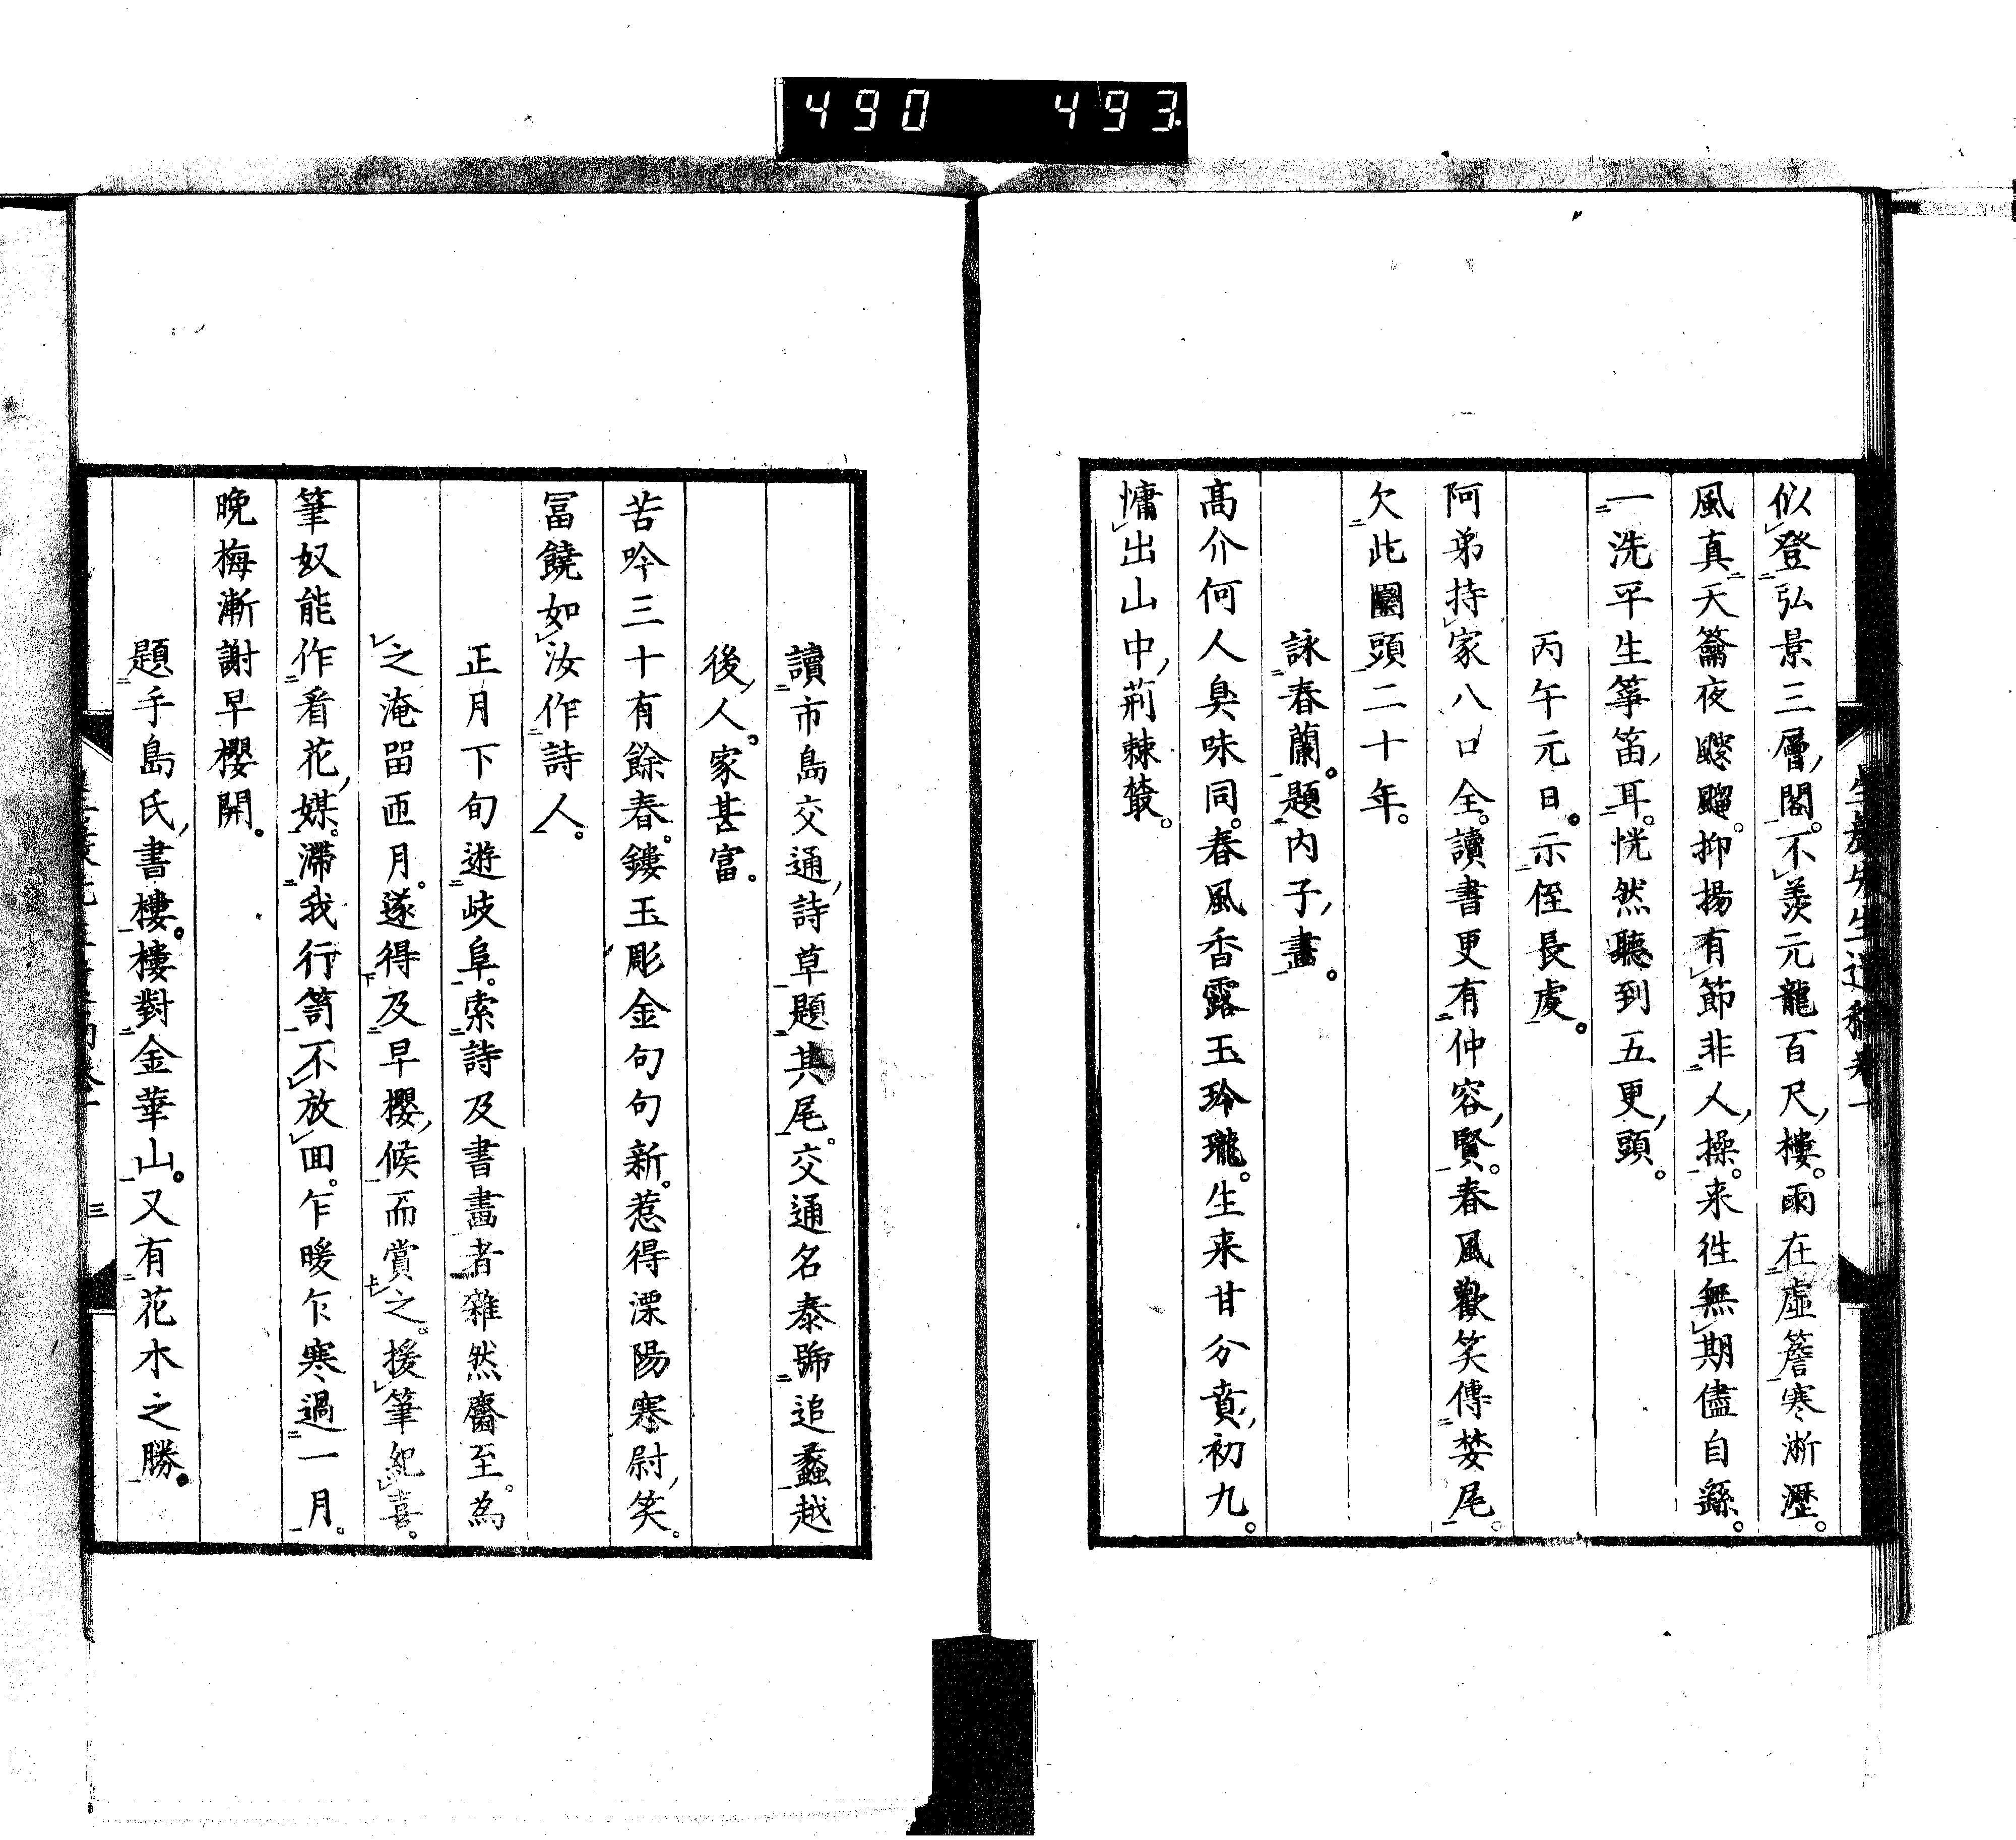 490 493
似登弘景三層閣。不羨元龍百尺樓。雨在虛簷寒淅瀝。
風真天籥夜飀飀。抑揚有節非人操。来往無期儘自繇。
一洗平生箏笛耳。恍然聽到五更頭。
丙午元日。示侄長虔。
阿弟持家八口全。讀書更有仲容賢。春風歡笑傳婪尾。
欠此圞頭二十年。
詠春蘭。題内子畫。
高介何人臭味同。春風香露玉玲瓏。生来甘分賁初九。
慵出山中荊棘叢。
讀市島交通詩草題其尾。交通名泰號追蠡越
後人。家甚富。
苦吟三十有餘春。鏤玉彫金句句新。惹得溧陽寒尉笑。
冨饒如汝作詩人。
正月下旬遊岐阜。索詩及書畫者雜然齎至。為
之淹畱匝月。遂得及早櫻候而賞之。援筆紀喜。
筆奴能作看花媒。滯我行笥不放囬。乍暖乍寒過一月。
晚梅漸謝早櫻開。
題手島氏書樓。樓對金華山。又有花木之勝。
三